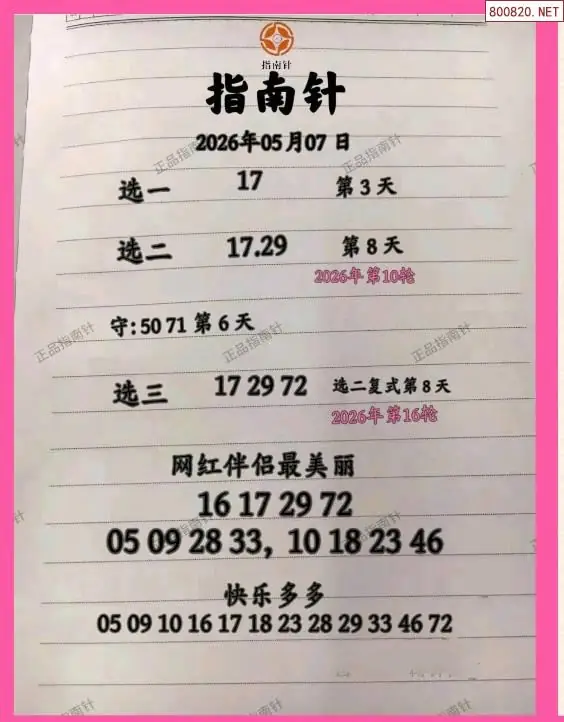 800820.NET
指南针
指南针
2026年05月07日
选一 17 第3天
选二 17.29 第8天
2026年第10轮
守:50 71 第6天
选三 17 29 72 选二复式第8天
2026年第16轮
网红伴侣最美丽
16 17 29 72
05 09 28 33, 10 18 23 46
快乐多多
05 09 10 16 17 18 23 28 29 33 46 72
正品指南针
正品指南针
正品指南针
正品指南针
正品指南针
正品指南针
正品指南针